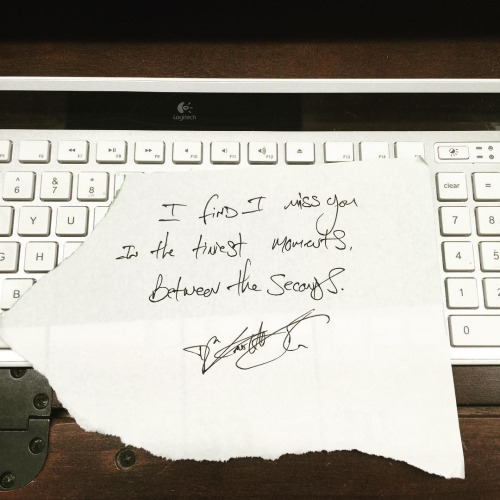 Logitech
F7 F8 F9 F10 F11 F12 F13 F14 F15
^ & * clear =
6 7 8 7 8
Y U
4 5
G H
1 2
B
0
I find I miss you
In the tiniest moments,
Between the seconds.